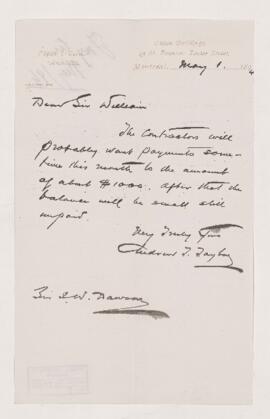 Union Buildings,
43 St. François Xavier Street,
Montreal, May 1. 1894
Dear Sir William
The Contractors will
probably want payments some-
time this month to the amount
of about $1000. After that the
balance will be small still
unpaid.
Very Truly Yours
Andrew T. Taylor
Sir J. W. Dawson